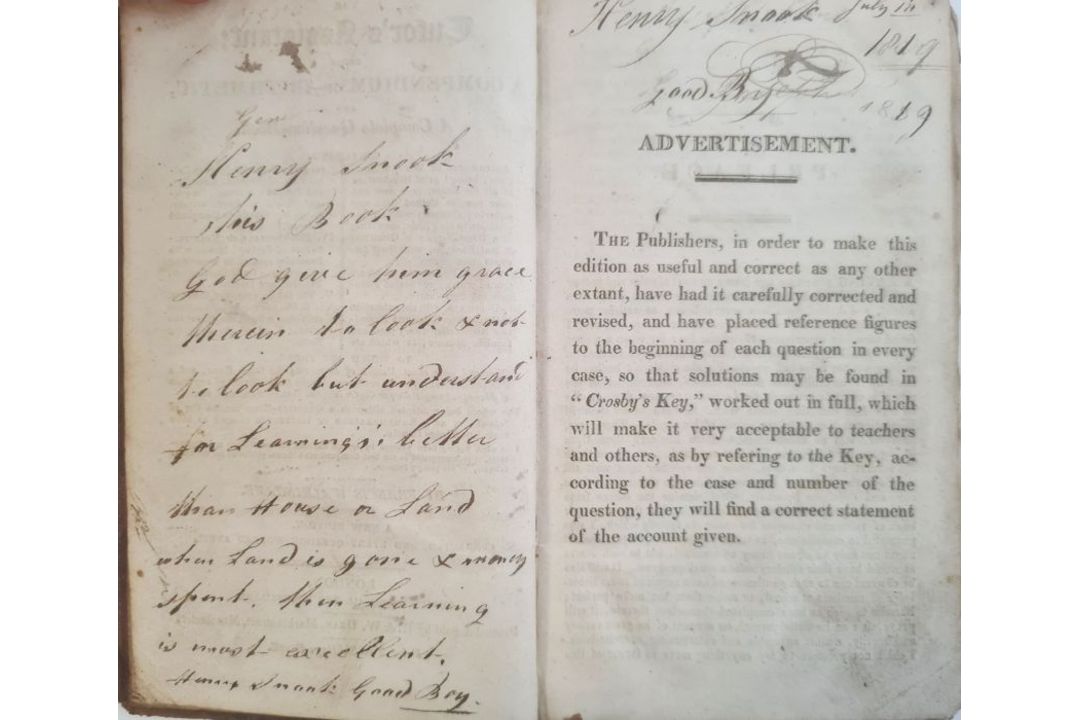 Henry Snook
his Book
God give him grace
therein to look & not
to look but understand
for Learning is better
than House or Land
when Land is gone & money
spent. then Learning
is most excellent.
Henry Snook Good Boy.
Henry Snook July
1819
Good Boy
1819
ADVERTISEMENT.
THE Publishers, in order to make this
edition as useful and correct as any other
extant, have had it carefully corrected and
revised, and have placed reference figures
to the beginning of each question in every
case, so that solutions may be found in
"Crosby's Key," worked out in full, which
will make it very acceptable to teachers
and others, as by refering to the Key, ac-
cording to the case and number of the
question, they will find a correct statement
of the account given.